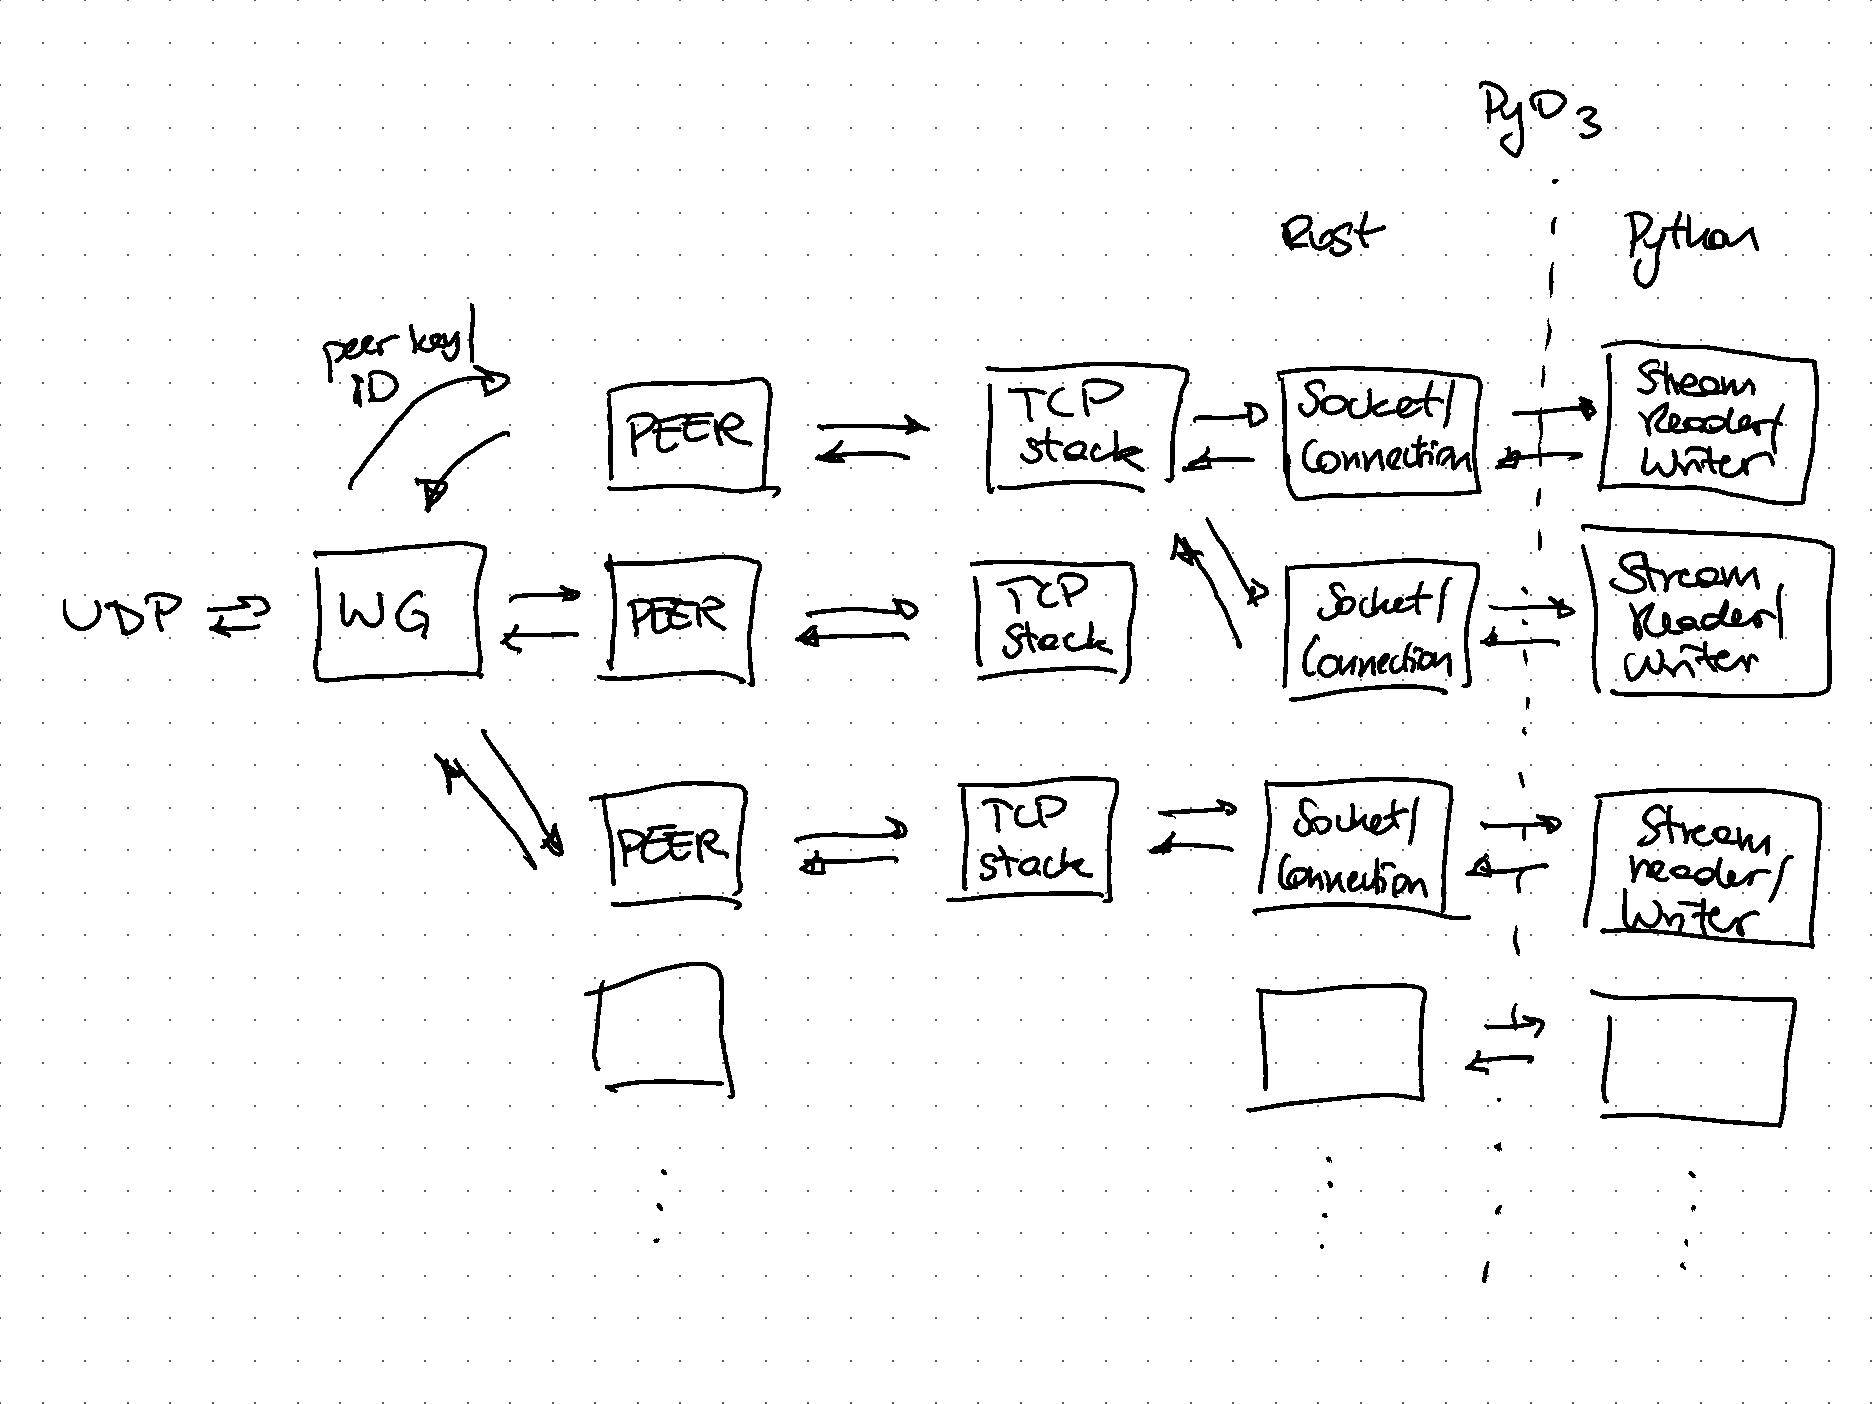 PyO3
Rust
Python
peer key/
ID
PEER
TCP
stack
Socket/
Connection
Stream
Reader/
Writer
UDP
WG
PEER
TCP
stack
Socket/
Connection
Stream
Reader/
Writer
PEER
TCP
stack
Socket/
Connection
Stream
reader/
Writer